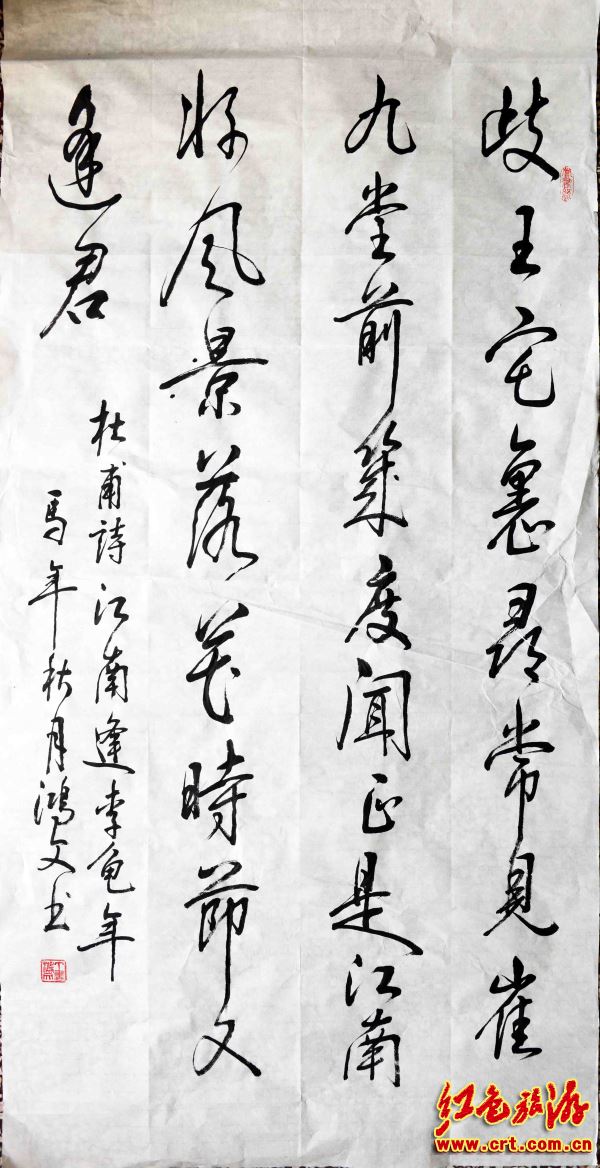 岐王宅裏尋常見崔
九堂前幾度聞正是江南
好风景落花時節又
逢君
杜甫詩江南逢李龟年
馬年秋月鴻文书
红色旅游
www.crt.com.cn